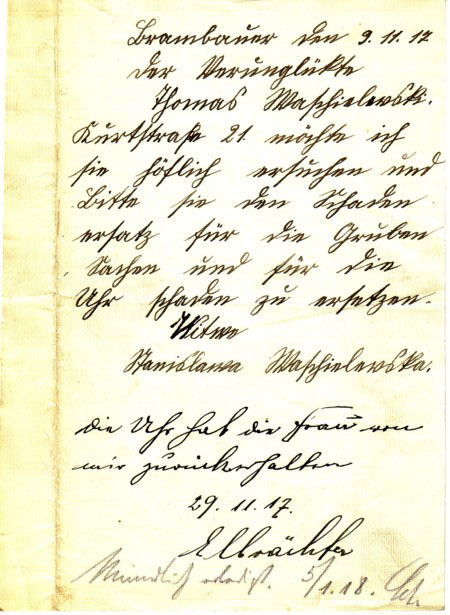 Brambauer den 9.11.17
Der Verunglükte
Thomas Waschielewski.
Kurtstraße 21. möchte ich
sie höflich ersuchen und
Bitte sie den Schaden
ersatz für die Gruben
Sachen und für die
Uhr schaden zu ersetzen.
Witwe
Stanislawa Waschielewska.
die Uhr hat die Frau von
mir zurückerhalten
29.11.17.
Mündlich erledigt. 5/1.18.